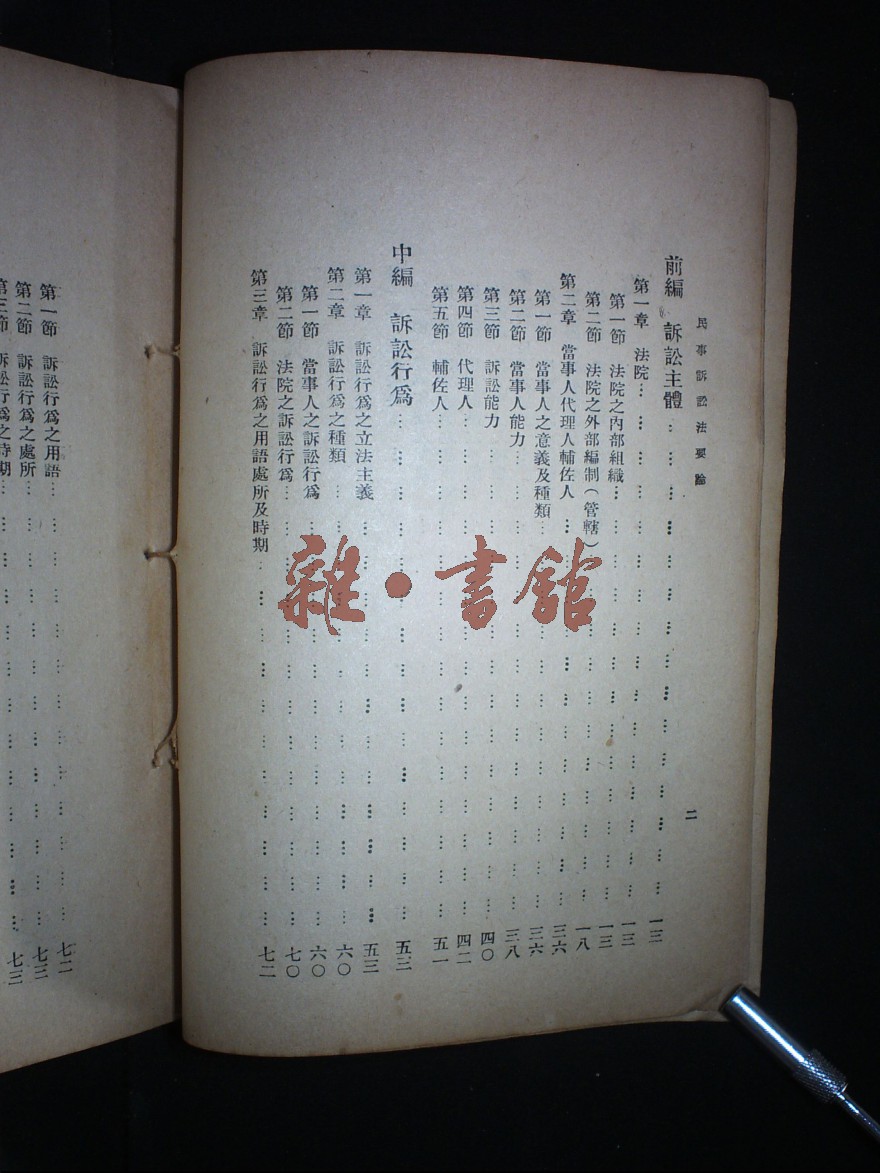 民事訴訟法要論
二
前編 訴訟主體 一三
第一章 法院 一三
第一節 法院之內部組織 一三
第二節 法院之外部編制(管轄) 一八
第二章 當事人代理人輔佐人 三六
第一節 當事人之意義及種類 三六
第二節 當事人能力 三八
第三節 訴訟能力 四〇
第四節 代理人 四二
第五節 輔佐人 五一
中編 訴訟行爲 五三
第一章 訴訟行爲之立法主義 五三
第二章 訴訟行爲之種類 六〇
第一節 當事人之訴訟行爲 六〇
第二節 法院之訴訟行爲 七〇
第三章 訴訟行爲之用語處所及時期 七二
第一節 訴訟行爲之用語 七二
第二節 訴訟行爲之處所 七三
第三節 訴訟行爲之時期 七三
雜·書館